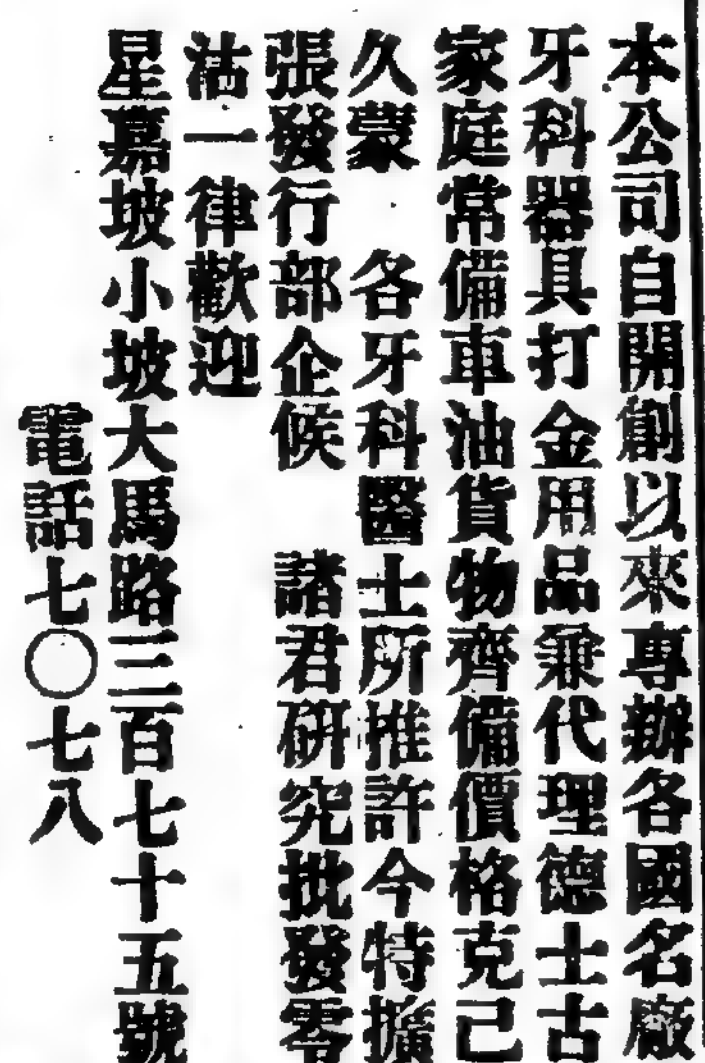 本公司自開創以來專辦各國名廠
牙科器具打金用品兼代理德士古
家庭常備車油貨物齊備價格克己
久蒙　各牙科醫士所推許今特擴
張發行部企候　諸君研究批發零
沽一律歡迎
星嘉坡小坡大馬路三百七十五號
電話七〇七八